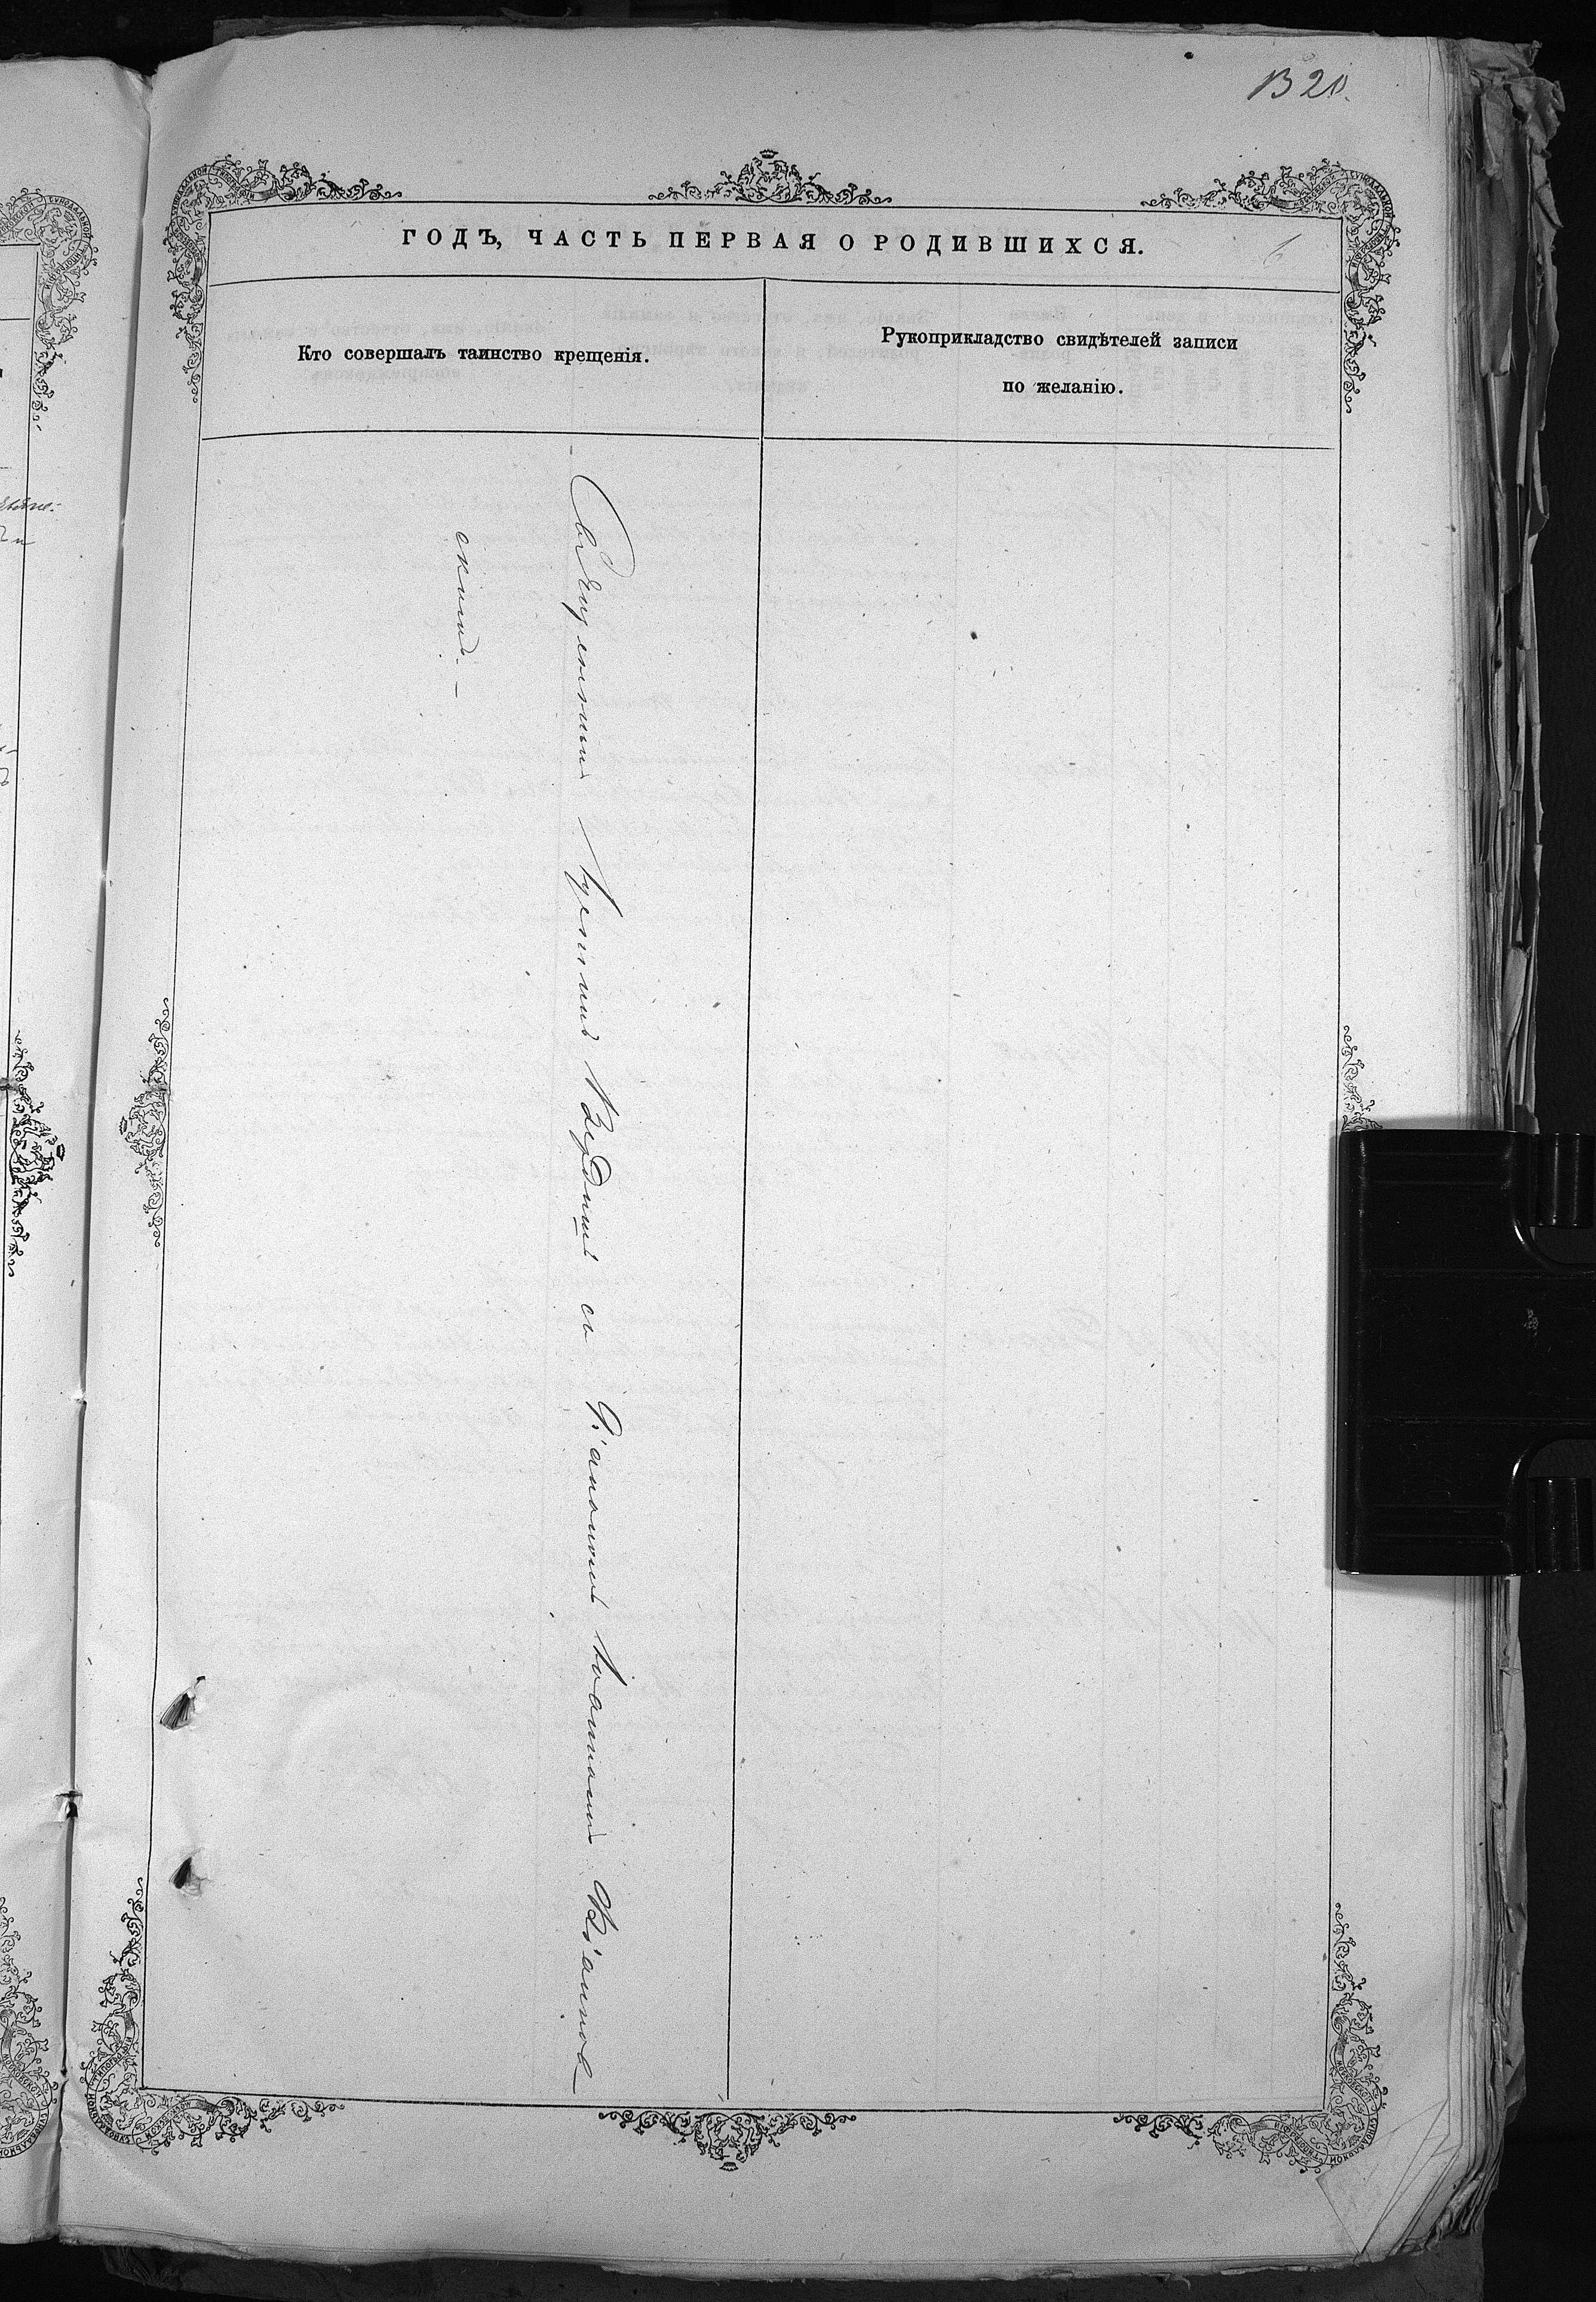 ГОДЪ, ЧАСТЬ ПЕРВАЯ О РОДИВШИХСЯ.
6
Кто совершалъ таинство крещенія.
Рукоприкладство свидѣтелей записи
по желанію.
Священникъ Іустинъ с Діакономъ Іоанномъ
скимъ. –